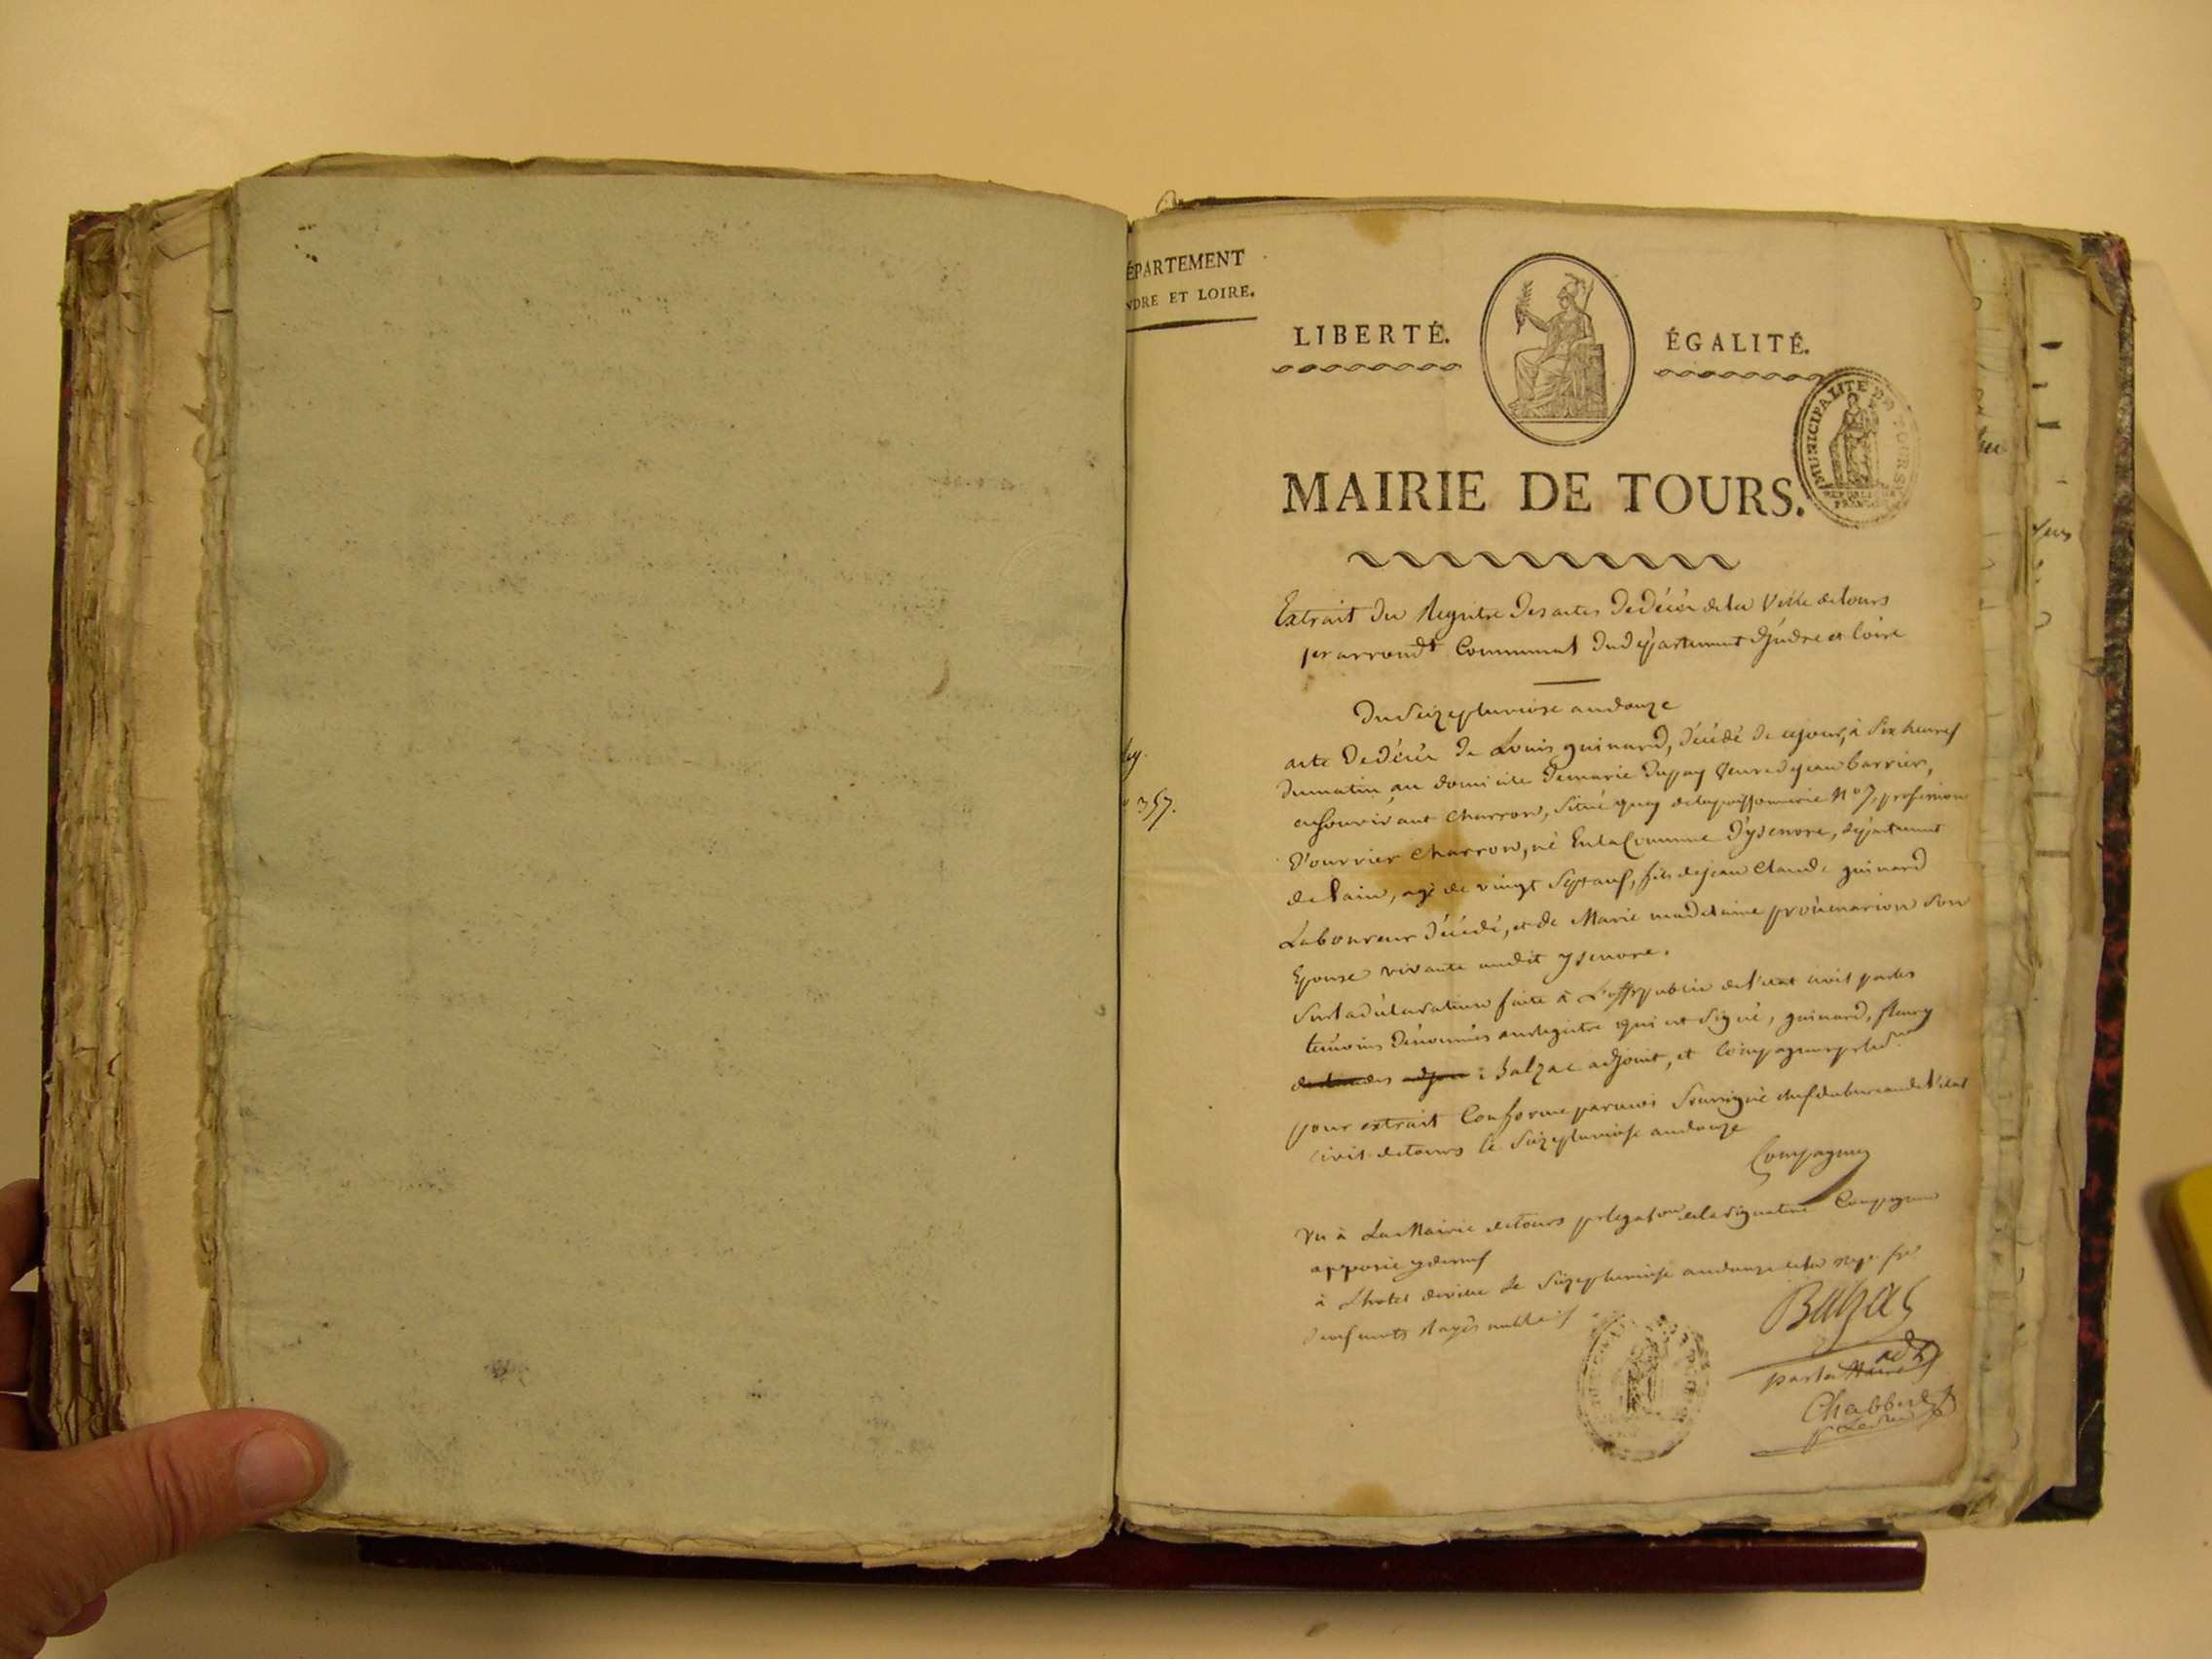 ÉPARTEMENT
NDRE ET LOIRE.
LIBERTÉ.
ÉGALITÉ.
MUNICIPALITÉ DE TOURS
MAIRIE DE TOURS.
Extrait du Registre des actes de décès de la Ville de tours
1er arrondt Communal du département d'indre et loire
Du Seize pluviose an douze
acte de décès de Louis guinard, décédé de ce jour, à Six heures
du matin au domicile de marie veuve de jean barrier,
charron, Situé quay de la poissonnerie No 7, profession
357.
d'ouvrier charron, né En la Commune d'ysenore, département
de l'ain, agé de vingt Sept ans, fils de jean Claude guinard
Laboureur décédé, et de Marie madelaine son
Epouse vivante audit ysenore.
Sur la déclaration faite à L'off public de l'etat civil par les
témoins dénommés au registre qui ont Signé, guinard, fleury
Balzac adjoint, et Compagnon
pour extrait Conforme par moi Soussigné chef du bureau de l'état
civil de tours le Seize pluviose an douze
Compagnon
Vu à La Mairie de tours de la signature Compagnon
apposée
à L'hotel de ville le Seize pluviose an douze de la rep. fse
Balzac
adjt
par le Maire